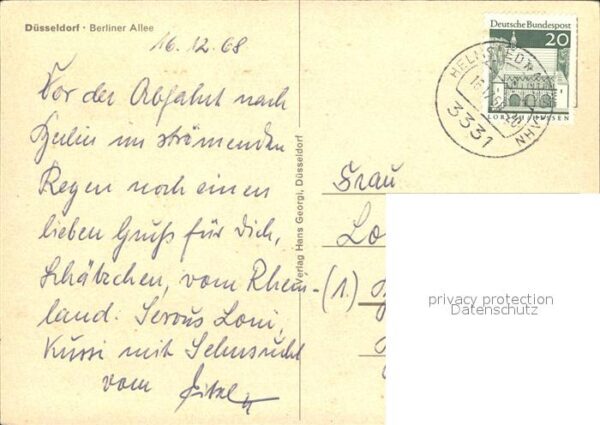 Düsseldorf · Berliner Allee
16.12.68
Vor der Abfahrt nach
Berlin im strömenden
Regen noch einen
lieben Gruß für Dich,
Schätzchen, vom Rhein-
land. Servus Loni,
Kussi mit Sehnsucht
vom
Verlag Hans Georgi, Düsseldorf
Deutsche Bundespost
20
LORSCH/HESSEN
3331
Frau
Lo
(1)
privacy protection
Datenschutz